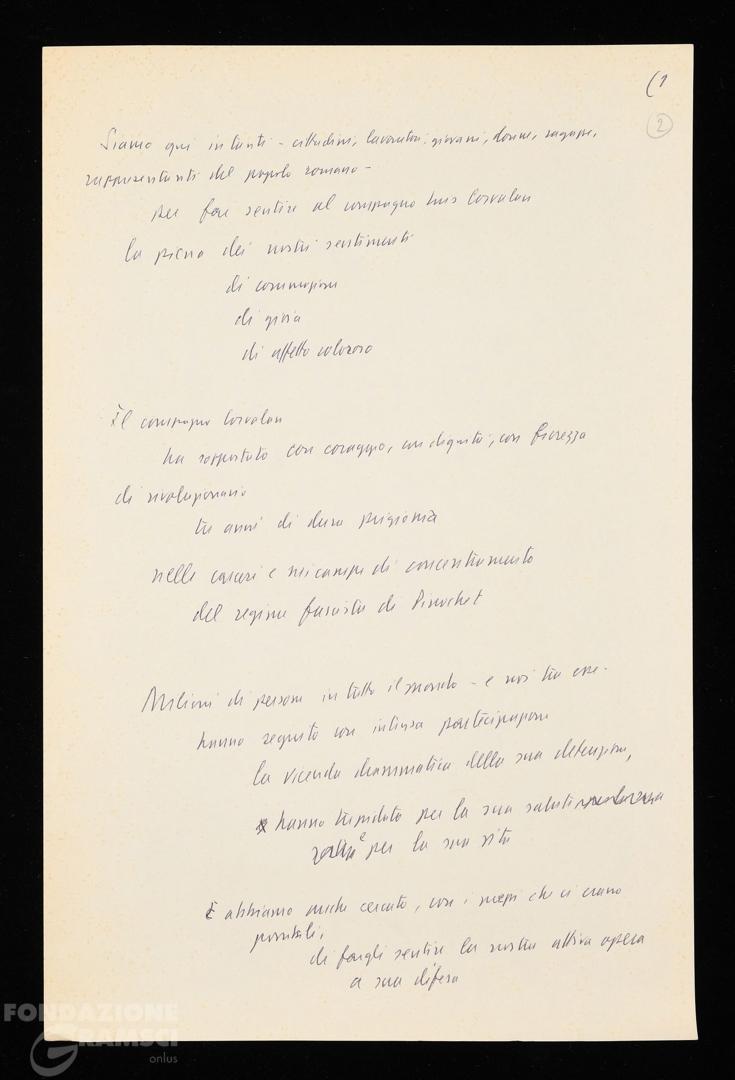 (1
2
Siamo qui in tanti – cittadini, lavoratori, giovani, donne, ragazze,
rappresentanti del popolo romano –
per far sentire al compagno Luis Corvalan
la piena dei nostri sentimenti
di commozione
di gioia
di affetto caloroso
Il compagno Corvalan
ha sopportato con coraggio, con dignità, con fierezza
di rivoluzionario
tre anni di dura prigionia
nelle carceri e nei campi di concentramento
del regime fascista di Pinochet
Milioni di persone in tutto il mondo – e noi tra essi –
hanno seguito con intensa partecipazione
la vicenda drammatica della sua detenzione,
hanno trepidato per la sua salute
e per la sua vita
E abbiamo anche cercato, con i mezzi che ci erano
possibili,
di fargli sentire la nostra attiva opera
a sua difesa
FONDAZIONE
GRAMSCI
onlus